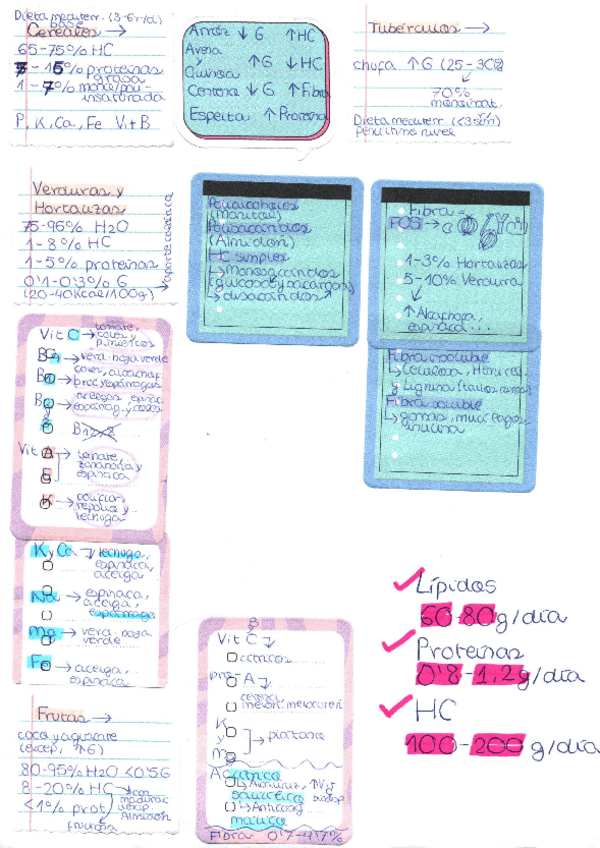 Dieta mediterr. (3-6r/d)
base
Cereales →
65-75% HC
- 15% proteínas
grasa
1 - 7% mono/poli-
insaturada
P, K, Ca, Fe Vit B
Arroz ↓ G ↑HC
Avena
y ↑G ↓HC
Quinoa
Centeno ↓ G ↑ Fibra
Espelta ↑ Proteína
Tubérculos →
chufa ↑G (25-30%)
↙
70%
monoinsat.
Dieta mediterr (<3sem)
Verduras y
Hortalizas →
75-95% H2O
1-8% HC
1-5% proteínas
0'1-0'3% G
(20-40Kcal/100g)
Polialcoholes
(Manitol)
Polisacáridos
(Almidón)
HC simples
↳ Monosacáridos
(glucosa y
↳ disacáridos
Fibra →
FOS →
1-3% Hortalizas
5-10% Verdura
↙
↑ Alcachofa,
espinaca ...
Fibra insoluble
↳ Celulosa, Hemicel
y Lignina (tallos
Fibra soluble
↳ gomas, mucílagos
inulina
Vit C → tomate,
coles y
pimientos
→ verd. hoja verde
coles, alcachof
broc y espárragos
→ acelgas, espina
espárrag, y coles
B12
Vit A → tomate,
zanahoria y
E espinaca
K → coliflor,
repollo y
lechuga
K y Ca → lechuga,
espinaca,
acelga
Na → espinaca,
acelga,
espárrago
Mg → verd. hoja
verde
Fe → acelga,
espinaca
Frutas →
coco y aguacate
(excep, ↑G)
80-95% H2O <0'5G
8-20% HC →
<1% prot Almidón
fructosa
Vit C ↓
cítricos
pro-A ↓
cereza
melón, melocotón
K
y → plátano
Mg
Ac cítrico
↳ Almíbar, ↑Vit
salicílico
↳ Anticoag
málico
Fibra 0'7-4'7%
✓ Lípidos
60-80g/día
✓ Proteínas
0'8-1,2g/día
✓ HC
100-200 g/día